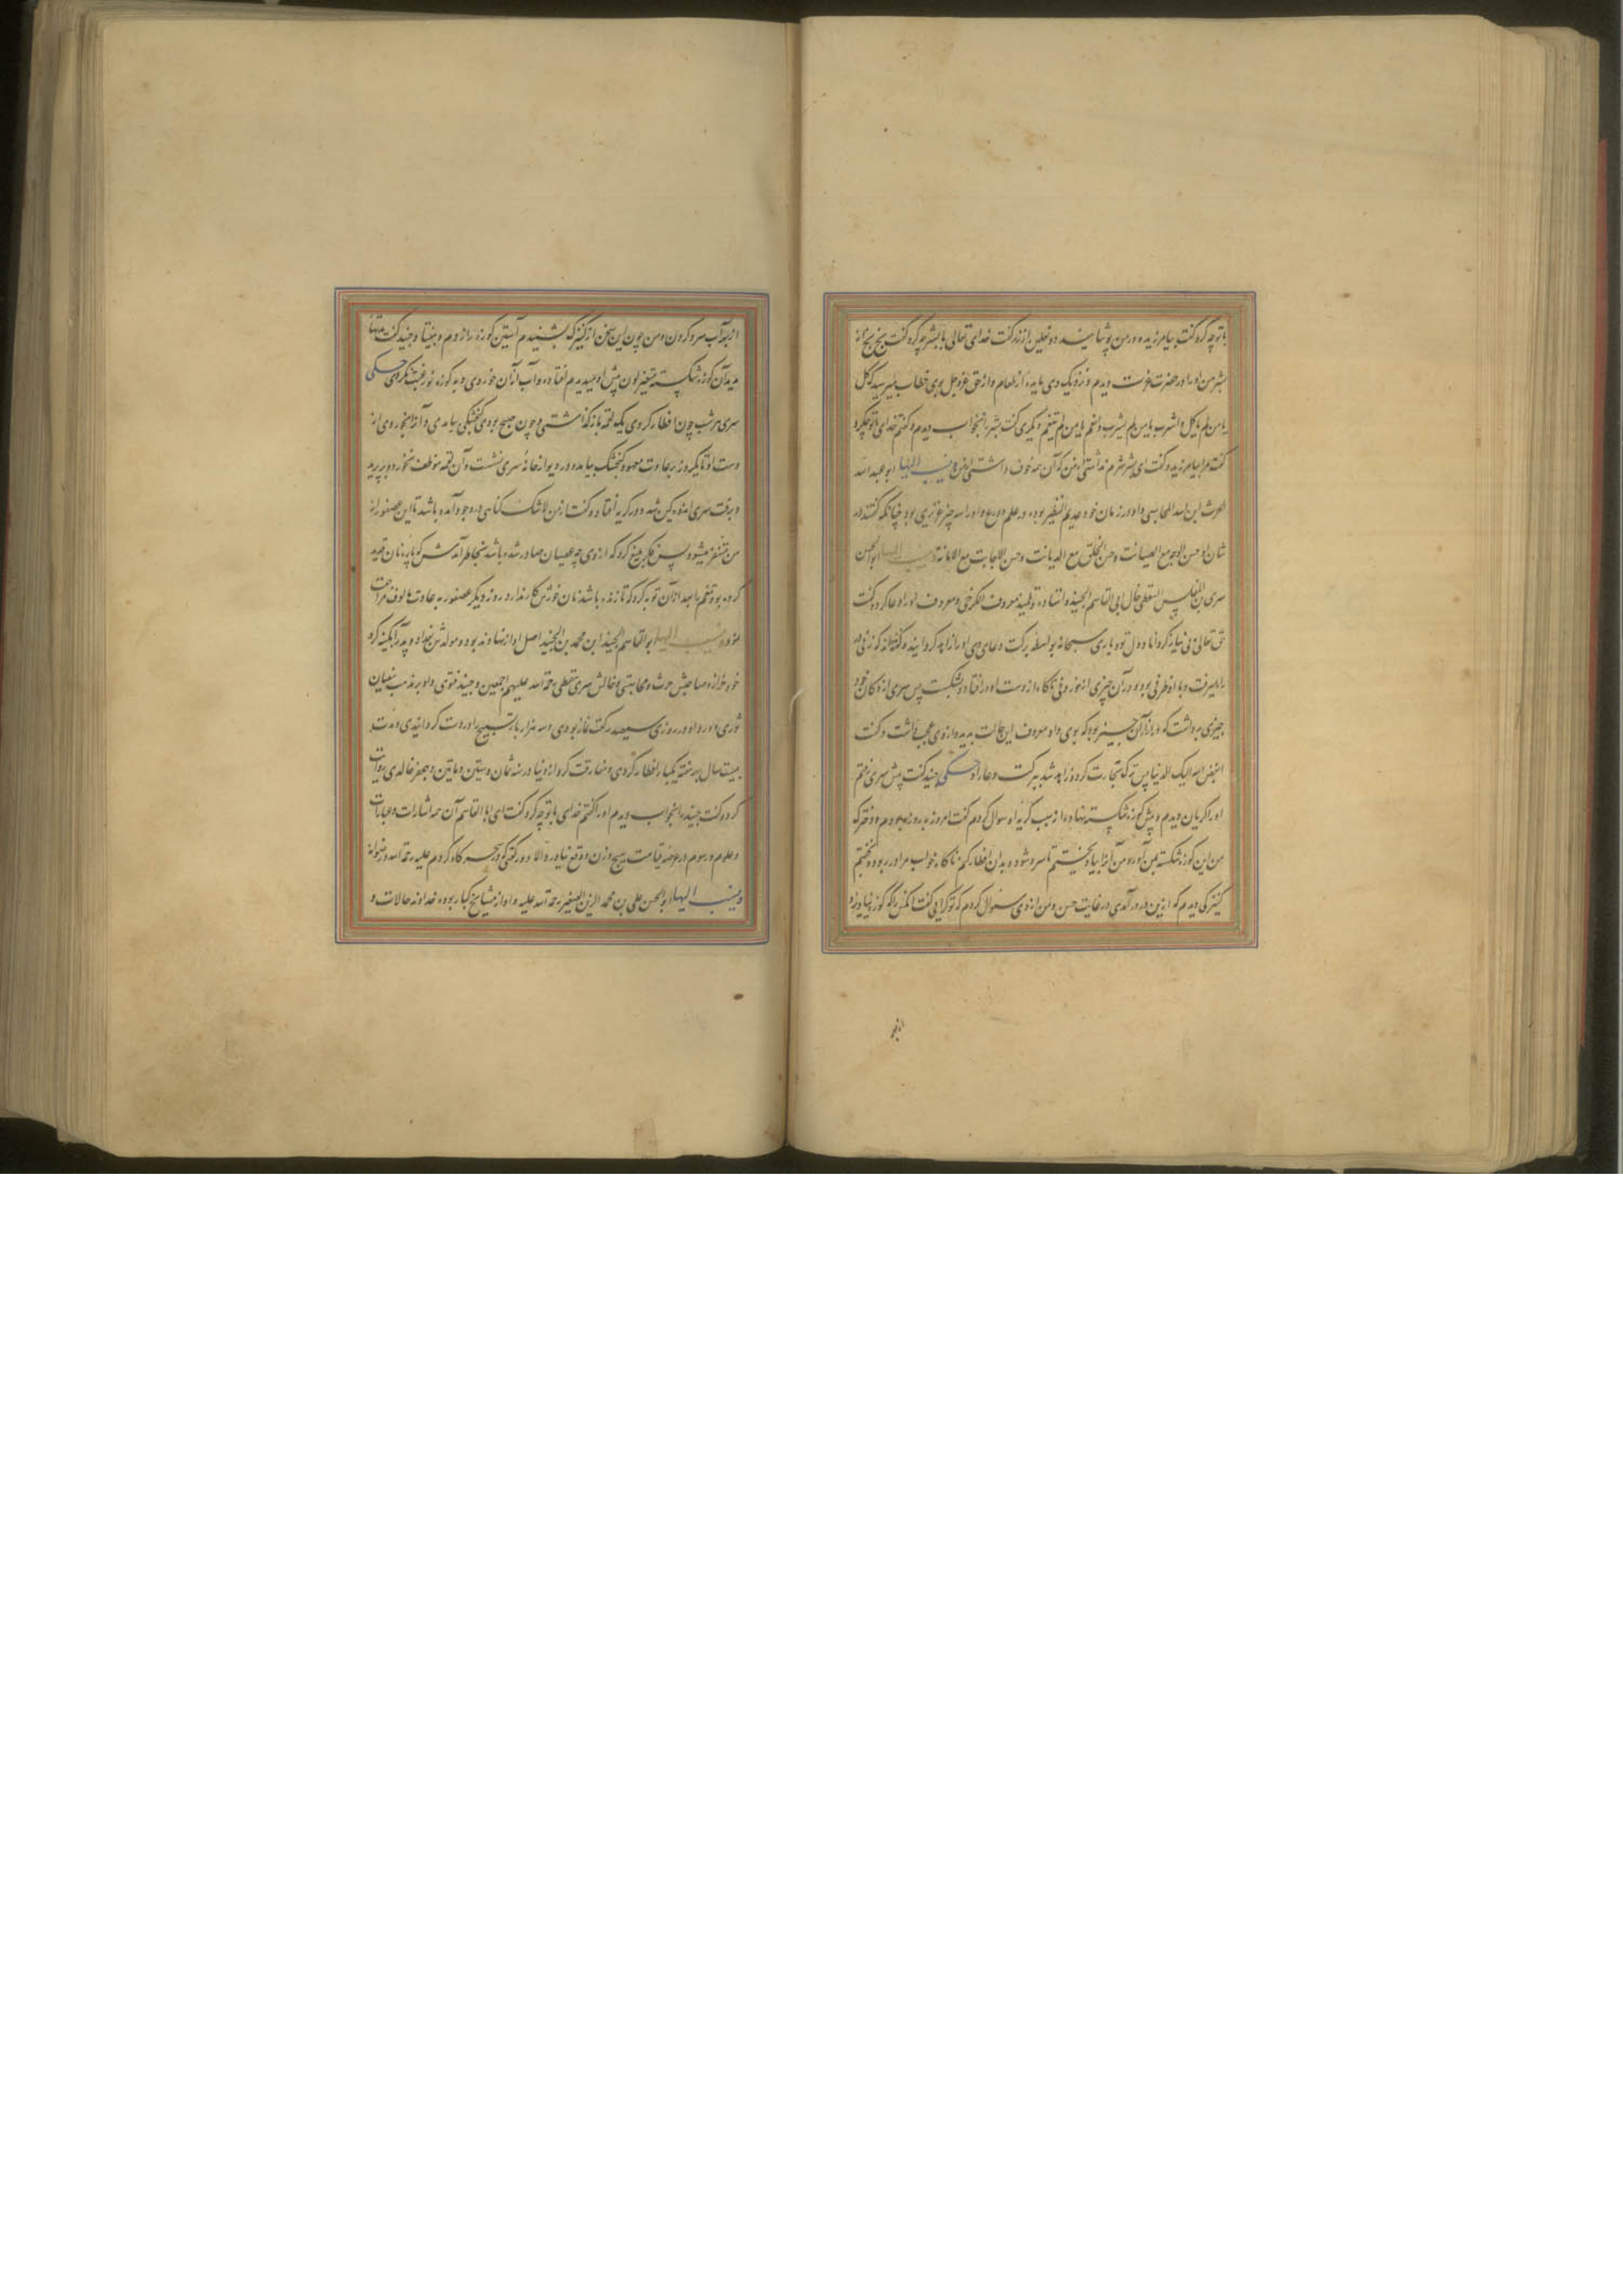 با تو چه کرد گفت بیامرزید و در من پوشانید دو نعلین از زر گفت خدای تعالی با بشر چه کرد گفت بخ بخ از
بشر من او را در حضرت عزت دیدم و نزدیک وی مایده از طعام و از حق عز و جل بوی خطاب میرسید که کل
یا من لم یاکل و اشرب یا من لم یشرب و تنعم یا من لم یتنعم و دیگری گفت بشر را بخواب دیدم و گفتم خدای با تو چکرد
گفت مرا بیامرزید و گفت ای بشر شرم نداشتی از من که آن همه خوف داشتی از من و ینسب الیها ابو عبد الله
الحرث ابن اسد المحاسبی و او در زمان خود عدیم النظیر بود و در علم و ورع و او را سه چیز عزیزی بود چنانکه گفتند در
شان او حسن الوجه مع الصیانت و حسن الخلق مع الدیانت و حسن الاجابت مع الامانة و ینسب الیها ابو الحسن
سری بن المغلس السقطی خال ابی القاسم الجنید و استاد و تلمیذ معروف الکرخی و معروف او را دعا کرد و گفت
حق تعالی بی نیاز گرداناد دل تو و باری سبحانه بواسطه برکت دعای وی او را زاهد گردانید و گفته‌اند که زنی
راه میرفت و با او ظرفی بود و در آن چیزی از خوردنی ناگاه از دست او در افتاد و بشکست پس سری از دکان خود
چیزی برداشت که در ازاء آن چیز بود که بوی داد و معروف این حالت بدید و از وی عجب داشت و گفت
ابغض الله الیک الدنیا پس ترک تجارت کرد و زاهد شد ببرکت دعا او حکی جنید گفت پیش سری رفتم
او را گریان دیدم و پیش کوزه شکسته نهاده از سبب گریه او سوال کردم گفت امروز بروزه بودم و دخترک
من این کوزه شکسته بمن آورد و من آنرا بیاویختم تا سرد شود و بدان افطار کنم ناگاه خواب مرا در ربود و بخفتم
کنیزکی دیدم که ازین در در آمدی در غایت حسن و من از وی سؤال کردم که تو کرایی گفت آنکس را که کوزه نیاویزد
از بهر
از بهر آب سرد کردن و من چون این سخن از کنیزک بشنیدم آستین کوزه را زدم و بیفتاد و جنید گفت مدتها
بدیدم آن کوزه شکسته متغیر لون پیش او میدیدم افتاده و آب از آن خوردی و بدیگر کوزه نو رغبت نکردی حکی
سری هر شب چون افطار کردی یک لقمه باز گذاشتی و چون صبح بودی گنجشکی بیامدی و آنرا بخوردی از
دست او تا یکروز بر عادت معهود گنجشک بیامد و بر دیوار خانهٔ سری نشست و آن لقمه موظف نخورد و بپرید
و برفت سری اندوهگین شد و در گریه افتاد و گفت از من لاشک گناهی در وجود آمده باشد تا این عصفور از
من متنفر میشود پس فکر بلیغ کرد که از وی چه عصیان صادر شده باشد بخاطر آمدش که پاره نان قدید
کرده بود و تنعم بعد از آن توبه کرد که تا زنده باشد نان خورش بکار ندارد روز دیگر عصفور بعادت مالوف مراجعت
نمود و ینسب الیها ابو القاسم الجنید ابن محمد بن الجنید اصل او از نهاوند بود و مولدش بغداد و پدر آبگینه گر و
خود خزاز و صاحبش حرث و محاسبی و خالش سری سقطی رحمة الله علیهم اجمعین و جنید فتوی دادی بر مذهب سفیان
ثوری و ورد او در روزی سیصد رکعت نماز بودی و سه هزار بار تسبیح را ورد گردانیدی و مدت
بیست سال هر هفته یکبار افطار کردی و مفارقت کرد از دنیا در سنه ثمان و ستین و مأتین و جعفر خالدی روایت
کرد و گفت جنید را بخواب دیدم او را گفتم خدای با تو چه کرد گفت ای ابا القاسم آن همه اشارات و عبارات
و علوم و رسوم در عرصه قیامت هیچ وزن و وقع نیاورد الا دو رکعتی که در سحرگاه کردم علیه رحمة الله و رضوانه
و ینسب الیها ابو الحسن علی بن محمد المزین الصغیر رحمة الله علیه و او از مشایخ کبار بود و خداوند حالات و